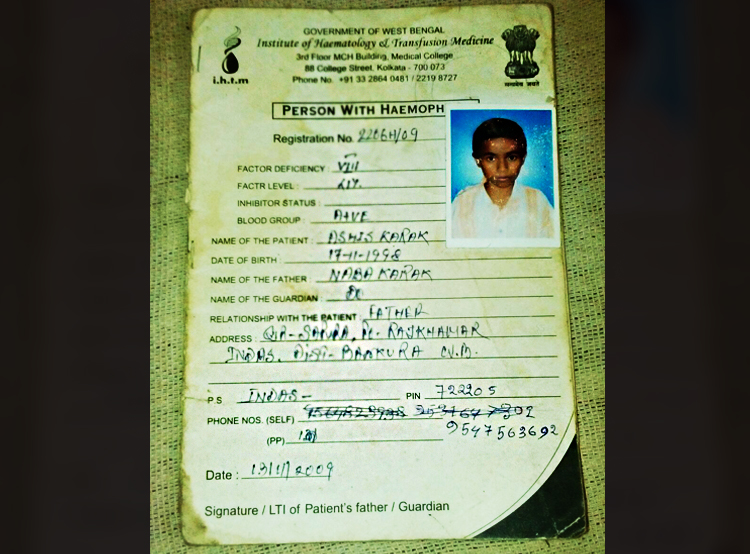 GOVERNMENT OF WEST BENGAL
Institute of Haematology & Transfusion Medicine
3rd Floor MCH Building, Medical College
88 College Street, Kolkata - 700 073
Phone No. +91 33 2864 0481 / 2219 8727
i.h.t.m
सत्यमेव जयते
PERSON WITH HAEMOPH
Registration No. 2206H/09
FACTOR DEFICIENCY : VIII
FACTR LEVEL :
INHIBITOR STATUS :
BLOOD GROUP : A+VE
NAME OF THE PATIENT : ASHIS KARAK
DATE OF BIRTH : 17-11-1998
NAME OF THE FATHER : NABA KARAK
NAME OF THE GUARDIAN : do
RELATIONSHIP WITH THE PATIENT : FATHER
ADDRESS :
INDAS. Dist- BANKURA
P S INDAS - PIN 722205
PHONE NOS. (SELF)
(PP) 9547563692
Date : 13/1/2009
Signature / LTI of Patient's father / Guardian